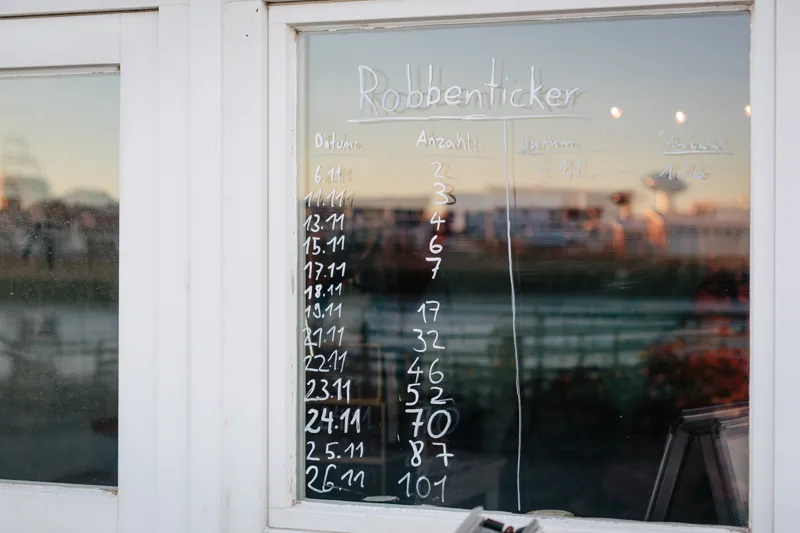 Robbenticker
Datum Anzahl Datum
6.11 2
11.11 3
13.11 4
15.11 6
17.11 7
18.11
19.11 17
21.11 32
22.11 46
23.11 52
24.11 70
25.11 87
26.11 101